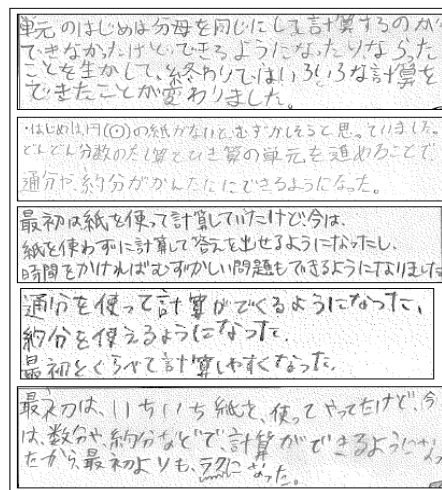 単元のはじめは分母を同じにして計算するのが
できなかったけど、できるようになったりならった
ことを生かして、終わりではいろいろな計算を
できたことが変わりました。
・はじめは、円(⊙)の紙がないと、むずかしそうと思っていました。
どんどん分数のたし算とひき算の単元を進めることで、
通分や、約分がかんたんにできるようになった。
最初は紙を使って計算していたけど、今は、
紙を使わずに計算して答えを出せるようになったし、
時間をかければむずかしい問題もできるようになりました
通分を使って計算ができるようになった、
約分を使えるようになった。
最初とくらべて計算しやすくなった。
最初は、いちいち紙を、使ってやってたけど、今
は、数分や、約分などで、計算ができるようになっ
たから、最初よりも、ラクになった。